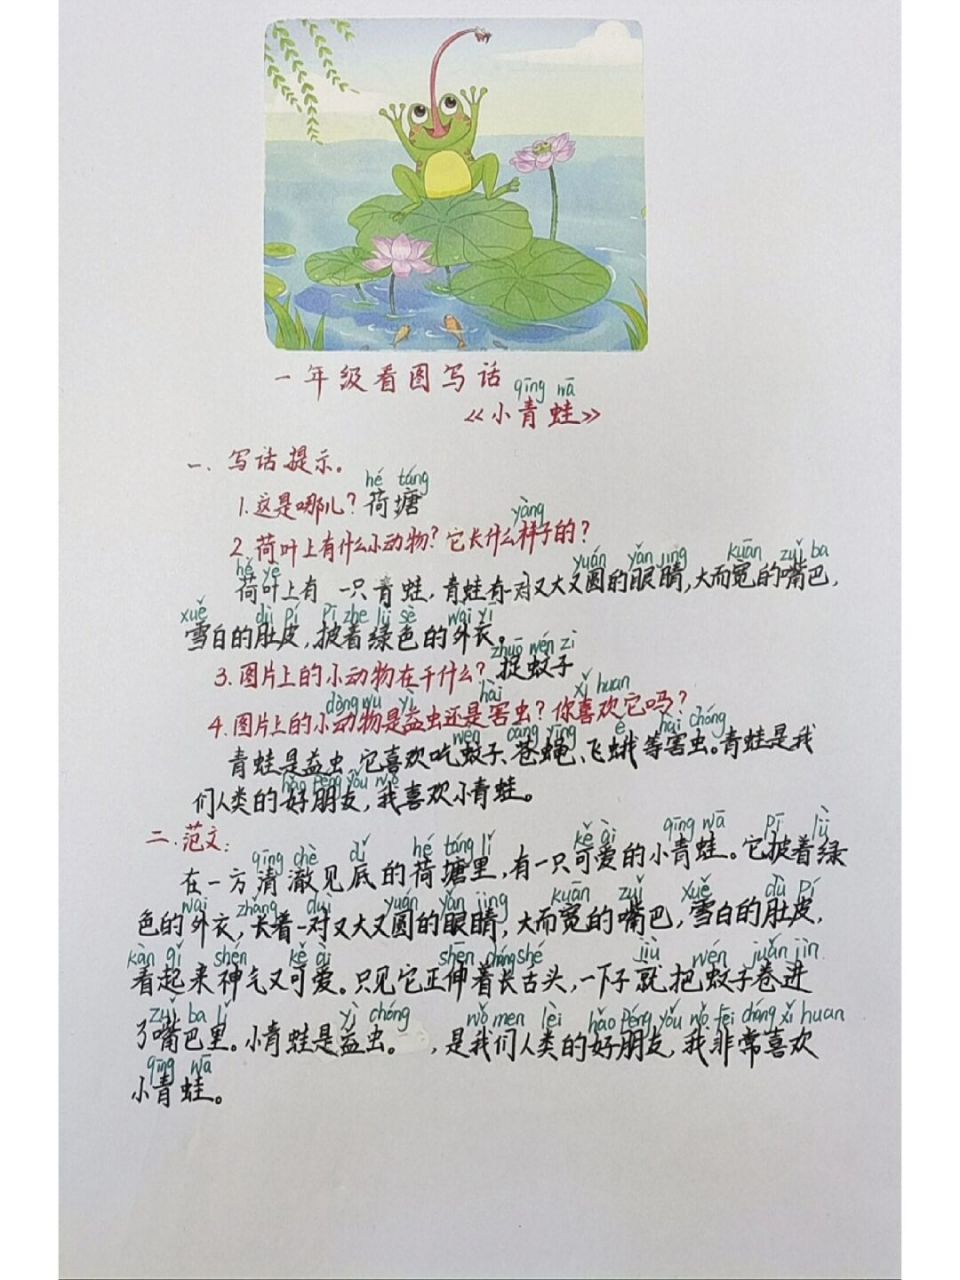 一年级看图写话
qīng wā
《小青蛙》
一、写话提示。
hé táng
1.这是哪儿？荷塘
yàng
2.荷叶上有什么小动物？它长什么样子的？
hé yè yuán yǎn jing kuān zuǐ ba
荷叶上有一只青蛙，青蛙有一对又大又圆的眼睛，大而宽的嘴巴，
xuě dù pí pī zhe lǜ sè wài yī
雪白的肚皮，披着绿色的外衣。
zhuō wén zi
3.图片上的小动物在干什么？捉蚊子
dòng wu yì hài xǐ huan
4.图片上的小动物是益虫还是害虫？你喜欢它吗？
wén cang ying é hài chóng
青蛙是益虫，它喜欢吃蚊子、苍蝇、飞蛾等害虫。青蛙是我
hǎo péng yǒu wǒ
们人类的好朋友，我喜欢小青蛙。
二.范文：
qīng chè dǐ hé táng lǐ kě ài qīng wā pī lǜ
在一方清澈见底的荷塘里，有一只可爱的小青蛙。它披着绿
wài zhǎng duì yuán yǎn jing kuān zuǐ xuě dù pí
色的外衣，长着一对又大又圆的眼睛，大而宽的嘴巴，雪白的肚皮，
kàn qǐ shén kě ài shēn cháng shé jiù wén juǎn jìn
看起来神气又可爱。只见它正伸着长舌头，一下子就把蚊子卷进
zuǐ ba lǐ yì chóng wǒ men lèi hǎo péng yǒu wǒ fēi cháng xǐ huan
了嘴巴里。小青蛙是益虫。，是我们人类的好朋友，我非常喜欢
qīng wā
小青蛙。